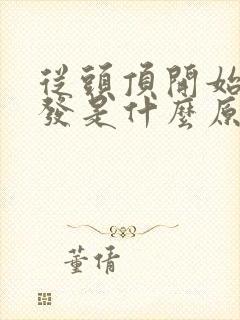 從頭頂開始
發是什麼原
董倩